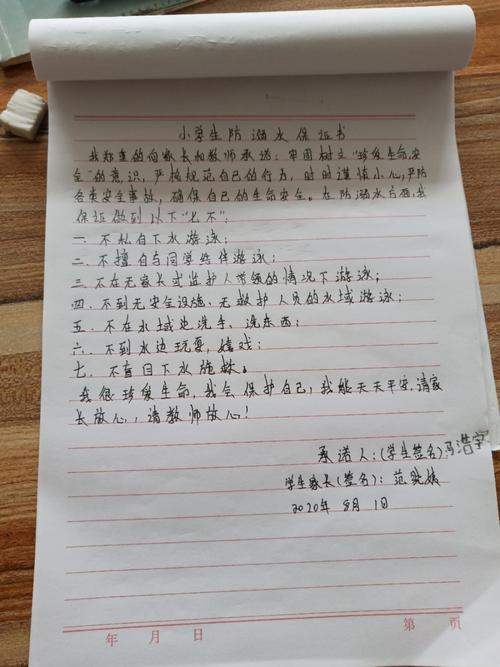 小学生防溺水保证书
我郑重的向家长和教师承诺：牢固树立"珍爱生命，安
全"的意识，严格规范自己的行为，时时谨慎小心，严防
各类安全事故，确保自己的生命安全。在防溺水方面，我
保证做到以下"七不"：
一、不私自下水游泳；
二、不擅自与同学结伴游泳；
三、不在无家长或监护人带领的情况下游泳；
四、不到无安全设施、无救护人员的水域游泳；
五、不在水域边洗手、洗东西；
六、不到水边玩耍、嬉戏；
七、不盲目下水施救。
我很珍爱生命，我会保护自己；我能天天平安，请家
长放心，请教师放心！
承诺人：（学生签名）冯浩宇
学生家长（签名）：范
2020年8月1日
年 月 日 第 页